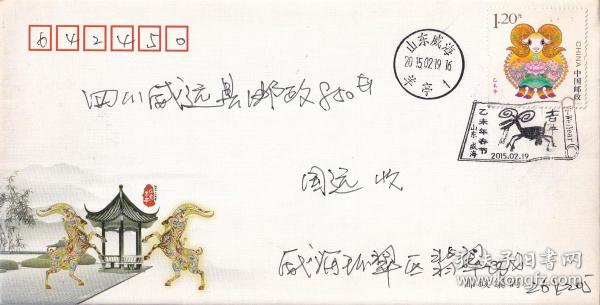 642450
山东威海
2015.02.19.16
羊亭 1
1.20元
CHINA 中国邮政
乙未年
四川威远县邮政
吉羊
乙未年春节
山东 威海
2015.02.19
周远 收
威海环翠区
孔夫子旧书网
kongfz.com